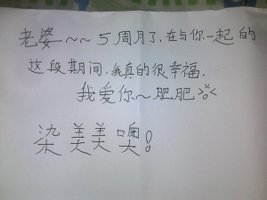 老婆~~5周月了、在与你一起的
这段期间,我真的很幸福.
我爱你~肥肥
染美美噢!